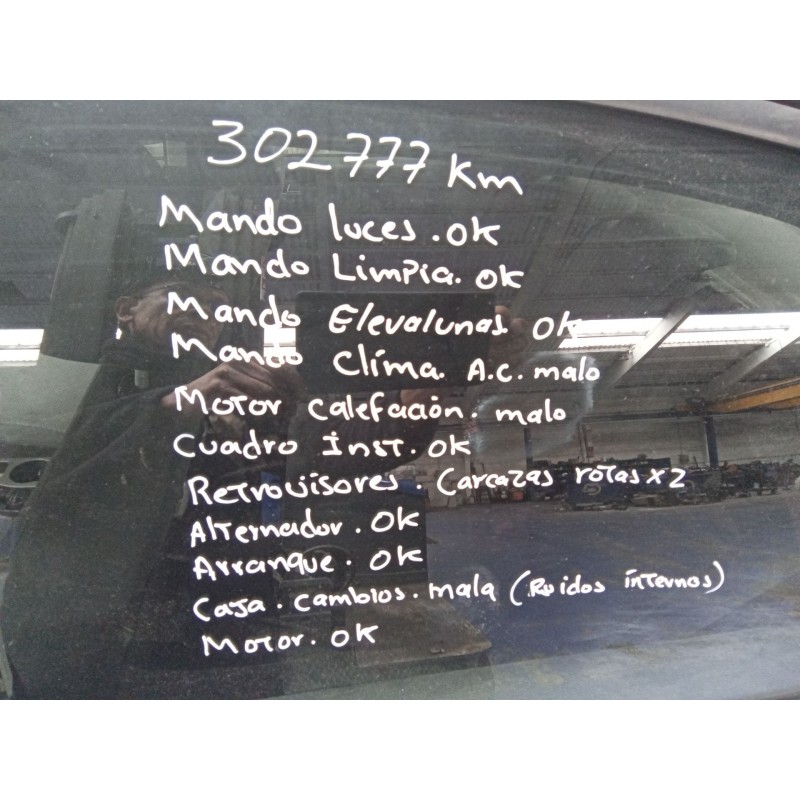 302777 Km
Mando luces. OK
Mando Limpia. OK
Mando Elevalunas OK
Mando Clima. A.C. malo
Motor Calefación. malo
Cuadro Inst. OK
Retrovisores. Carcazas rotas x2
Alternador. OK
Arranque. OK
Caja. cambios. mala (Ruidos internos)
Motor. OK